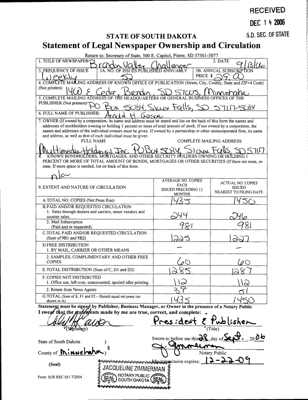 RECEIVED
DEC 14 2006
S.D. SEC. OF STATE
STATE OF SOUTH DAKOTA
Statement of Legal Newspaper Ownership and Circulation
Return to: Secretary of State, 500 E. Capitol, Pierre, SD 57501-5077
1. TITLE OF NEWSPAPER Brandon Valley Challenger 2. DATE 9/13/06
3. FREQUENCY OF ISSUE 3A. NO. OF ISSUES PUBLISHED ANNUALLY 3B. ANNUAL SUBSCRIPTION
Weekly 52 PRICE $ 25.00
4. COMPLETE MAILING ADDRESS OF KNOWN OFFICE OF PUBLICATION (Street, City, County, State and ZIP+4 Code)
(Not printers) Brandon SD 57005 Minnehaha
5. COMPLETE MAILING ADDRESS OF THE HEADQUARTERS OR GENERAL BUSINESS OFFICES OF THE
PUBLISHER (Not printer) PO Box 5084, Sioux Falls, SD 57117-5084
6. FULL NAME OF PUBLISHER:
7. OWNER (If owned by a corporation, its name and address must be stated and also on the back of this form the names and
addresses of stockholders owning or holding 1 percent or more of total amount of stock. If not owned by a corporation, the
names and addresses of the individual owners must be given. If owned by a partnership or other unincorporated firm, its name
and address, as well as that of each individual must be given.
FULL NAME COMPLETE MAILING ADDRESS
PO Box 5084, Sioux Falls, SD 57117
8. KNOWN BONDHOLDERS, MORTGAGES, AND OTHER SECURITY HOLDERS OWNING OR HOLDING 1
PERCENT OR MORE OF TOTAL AMOUNT OF BONDS, MORTGAGES OR OTHER SECURITIES (If there are none, so
state. If more space is needed, list on back of this form.
n/a
9. EXTENT AND NATURE OF CIRCULATION AVERAGE NO. COPIES EACH ISSUED PRECEDING 12 MONTHS ACTUAL NO. COPIES ISSUED NEAREST TO FILING DATE
A. TOTAL NO. COPIES (Net Press Run) 1435 1450
B. PAID AND/OR REQUESTED CIRCULATION
1. Sales through dealers and carriers, street vendors and
counter sales. 244 246
2. Mail Subscription
(Paid and or requested) 981 981
C. TOTAL PAID AND/OR REQUESTED CIRCULATION
(Sum of 9B1 and 9B2) 1225 1227
D. FREE DISTRIBUTION
1. BY MAIL, CARRIER OR OTHER MEANS
2. SAMPLES, COMPLIMENTARY AND OTHER FREE
COPIES 60 60
E. TOTAL DISTRIBUTION (Sum of C, D1 and D2) 1285 1287
F. COPIES NOT DISTRIBUTED
1. Office use, left over, unaccounted, spoiled after printing 112 112
2. Return from News Agents 51
G. TOTAL (Sum of E, F1 and F2 - Should equal net press run
shown in A) 1435 1450
Statement must be signed by Publisher, Business Manager, or Owner in the presence of a Notary Public
I swear that the statements made by me are true, correct, and complete:
President & Publisher
(Title)
State of South Dakota Sworn to before me this 28 day of Sept. 06
County of Minnehaha Notary Public
(Seal) expires: 12-22-09
JACQUELINE ZIMMERMAN
NOTARY PUBLIC
SOUTH DAKOTA
Form: SOS REC 051 7/2004